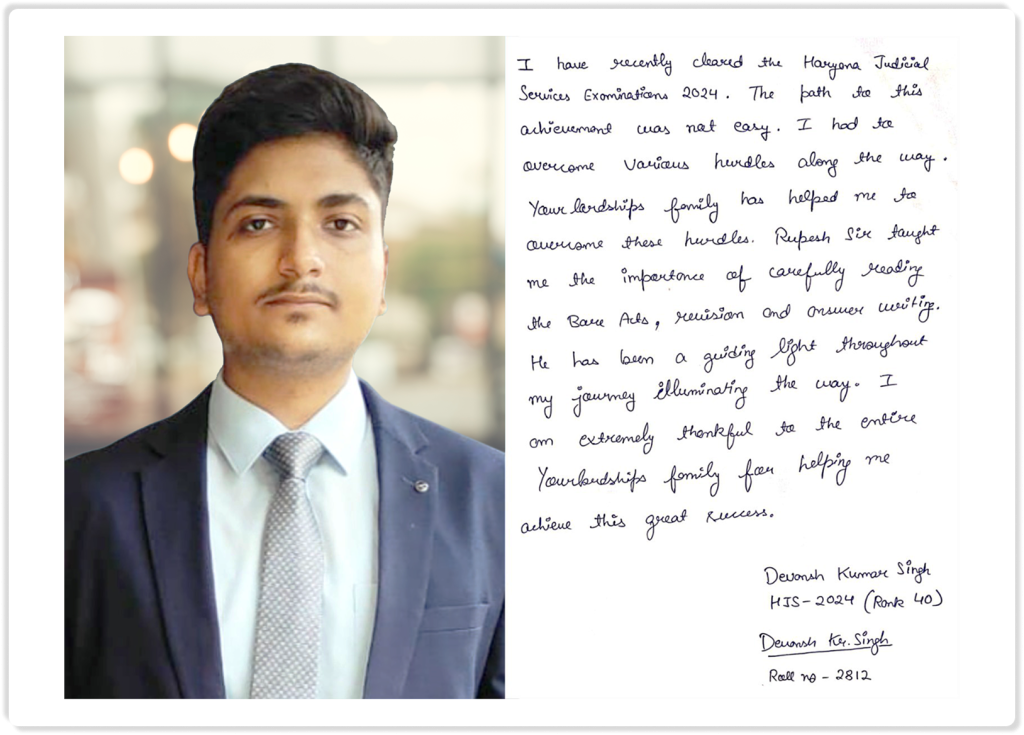 I have recently cleared the Haryana Judicial
Services Examinations 2024. The path to this
achievement was not easy. I had to
overcome various hurdles along the way.
Your lordships family has helped me to
overcome these hurdles. Rupesh Sir taught
me the importance of carefully reading
the Bare Acts, revision and answer writing.
He has been a guiding light throughout
my journey illuminating the way. I
am extremely thankful to the entire
Yourlordships family for helping me
achieve this great success.
Devansh Kumar Singh
HJS-2024 (Rank 40)
Devansh Kr. Singh
Roll no - 2812